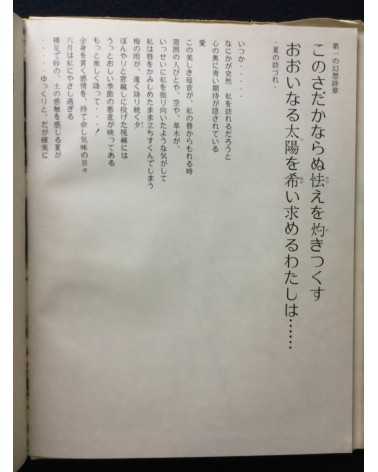 第一の幻想詩章
このさだかならぬ怯えを灼きつくす
おおいなる太陽を希い求めるわたしは……
・夏の訪づれ
いつか・・・・・
なにかが突然 私を訪れるだろうと
心の奥に青い期待が隠されている
愛
この美しき母音が、私の唇からもれる時
周囲の人びとや、空や、草木が、
いっせいに私を振り向いたような気がして
私は唇をかみしめたまま立ちすくんでしまう
梅の雨が、遠く降り続く夕
ぼんやりと窓越しに投げた視線には
うっとおしい季節の悪意が映ってある
もっと激しく降って・・・・！
全身を貫く感情を、持て余し気味の日々
六月は私にやさし過ぎる
裸足で砂の、土の感触を感じる夏が
・・・・ゆっくりと、だが確実に